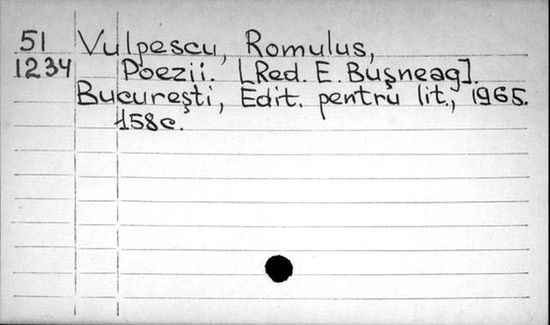 51 Vulpescu, Romulus,
1234 Poezii. [Red. E. Buşneag].
Bucureşti, Edit. pentru lit., 1965.
158c.